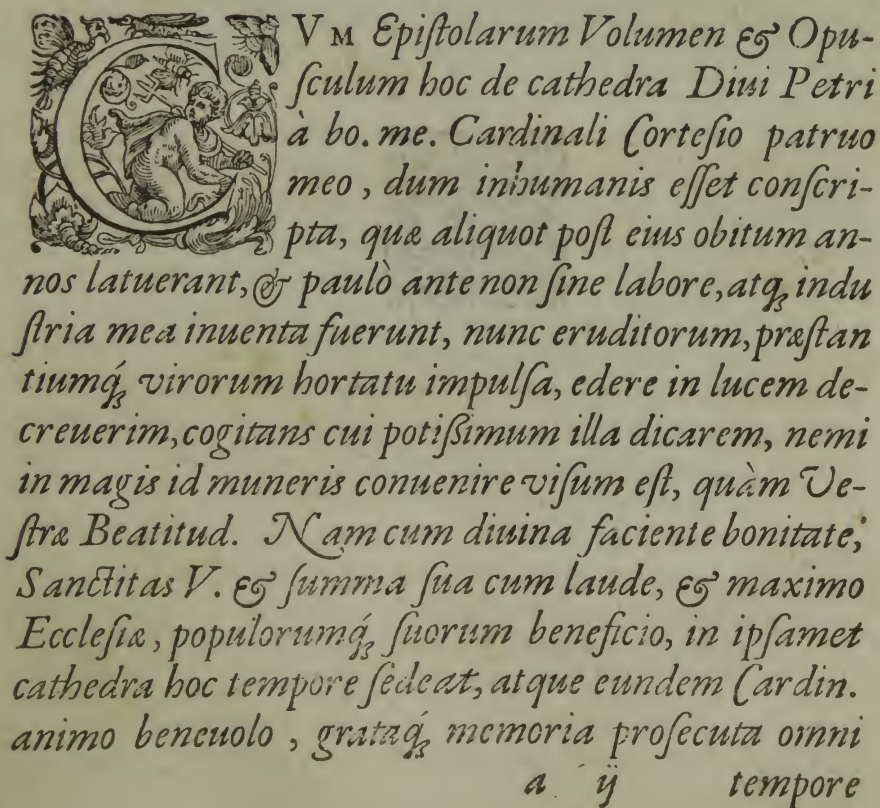 CVM Epiſtolarum Volumen & Opu-
ſculum hoc de cathedra Diui Petri
à bo. me. Cardinali Corteſio patruo
meo, dum inhumanis eſſet conſcri-
pta, quæ aliquot poſt eius obitum an-
nos latuerant, & paulò ante non ſine labore, atq; indu
ſtria mea inuenta fuerunt, nunc eruditorum, præſtan
tiumq́; virorum hortatu impulſa, edere in lucem de-
creuerim, cogitans cui potiſſimum illa dicarem, nemi
in magis id muneris conuenire viſum eſt, quàm Ve-
ſtræ Beatitud. Nam cum diuina faciente bonitate,
Sanctitas V. & ſumma ſua cum laude, & maximo
Eccleſiæ, populorumq́; ſuorum beneficio, in ipſamet
cathedra hoc tempore ſedeat, atque eundem Cardin.
animo beneuolo, grataq́; memoria proſecuta omni
a ij tempore